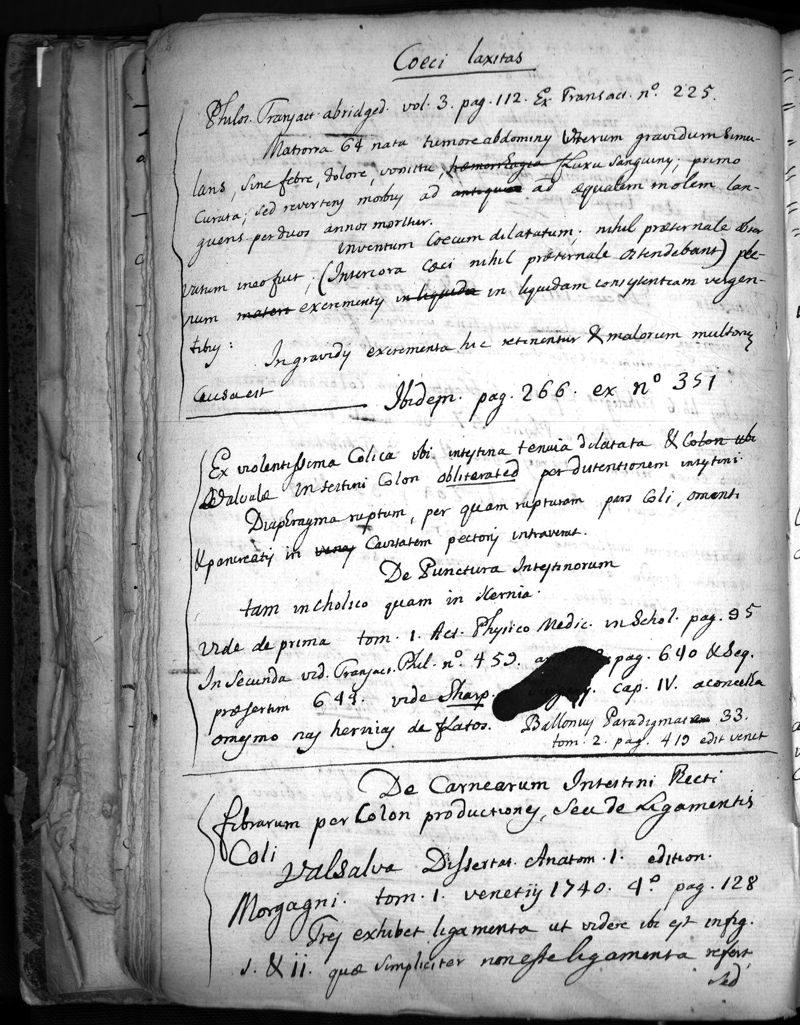 Coeci laxitas
Philos. Transact. abridged. vol. 3. pag. 112. Ex Transact. nº. 225.
Matrona 64 nata tumore abdominis Uterum gravidum simu-
lans, sine febre, dolore, vomitu, haemorrhagia fluxu sanguinis; primo
Curata; sed revertens morbus ad ad aequalem molem lan-
guens per duos annos moritur.
inventum Coecum dilatatum; nihil praeternale obser
vatum in eo fuit; (Interiora Coeci nihil praeternale ostendebant) ple-
num excrementis in liquida in liquidam consistentiam vergen-
tibus:
In gravidis excrementa hic retinentur & malorum multorum
Causa est
Ibidem. pag. 266. ex nº 351
Ex violentissima Colica ubi intestina tenuia dilatata & Colon ubi
Valvulae insertini Colon obliterated per dutentionem intestini
Diaphragma ruptum, per quam rupturam pars Coli, omenti
& pancreatis in Cavitatem pectoris intraverat.
De Punctura Intestinorum
tam in cholico quam in Hernia.
Vide de prima tom. 1. Act. Physico Medic. in Schol. pag. 95
In Secunda vid. Transact. Phil. nº. 459. pag. 640 & Seq.
praesertim 644. vide Sharp. cap. IV. aconcelha
o mesmo nas hernias de flatos. Ballonius Paradigmat 33.
tom. 2. pag. 419 edit venet
De Carnearum Intestini Recti
fibrarum per Colon productiones, seu de Ligamentis
Coli
Valsalva Dissertat. Anatom. 1. edition.
Morgagni. tom. 1. venetiis 1740. 4º. pag. 128
Tres exhibet ligamenta ut videre ibi est in fig.
1. & ii. quae simpliciter non esse ligamenta refert,
sed